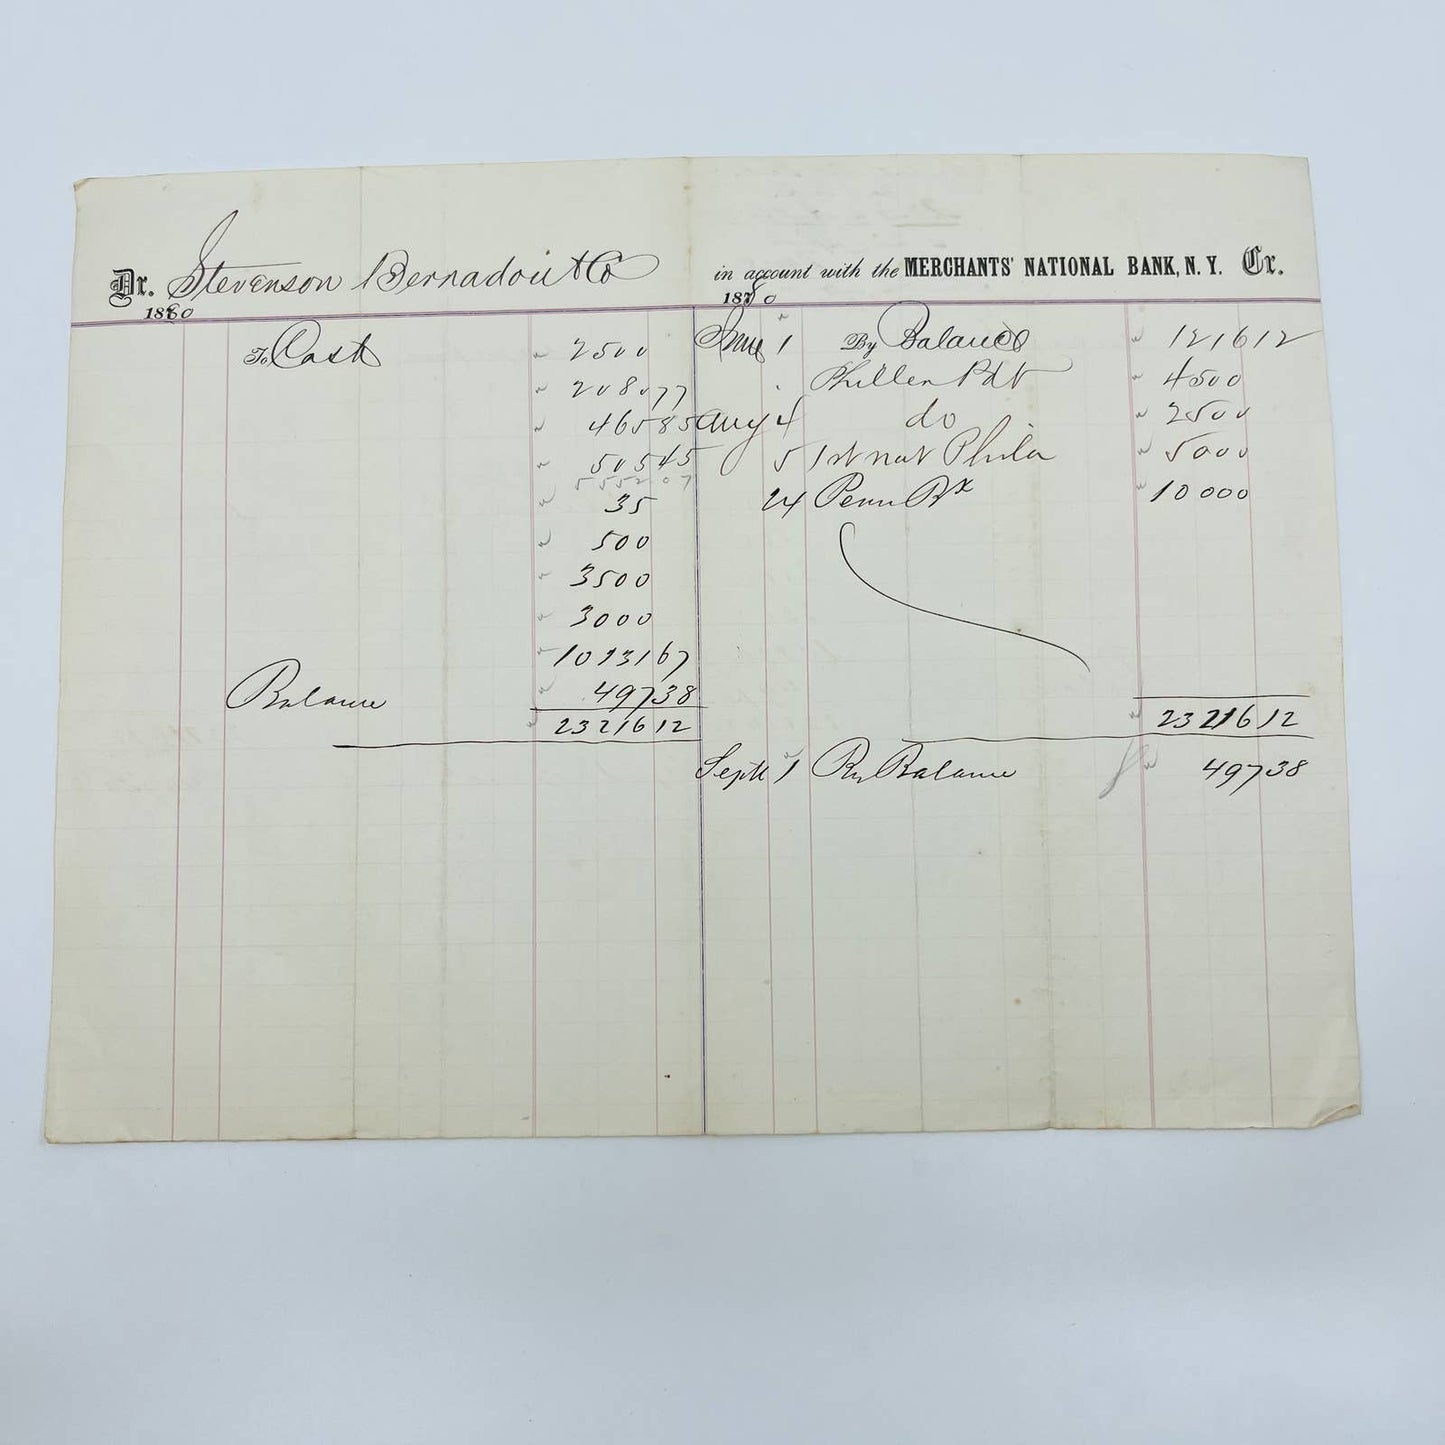 Dr. Stevenson Bernadou & Co in account with the MERCHANTS' NATIONAL BANK, N. Y. Cr.
1880 1880
To Cash 2500 June 1 By Balance 121612
208077 4500
46585 Aug 4 do 2500
50545 5 1st nat Phila 5000
555207
35 24 Penn Bk 10000
500
3500
3000
1013167
Balance 49738
2321612 2321612
Sept 1 By Balance 49738